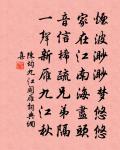 煙波渺渺夢悠悠
家在江南海盡頭
音信稀疏兄弟隔
一聲新雁九江秋
陳均九江聞雁詞典網